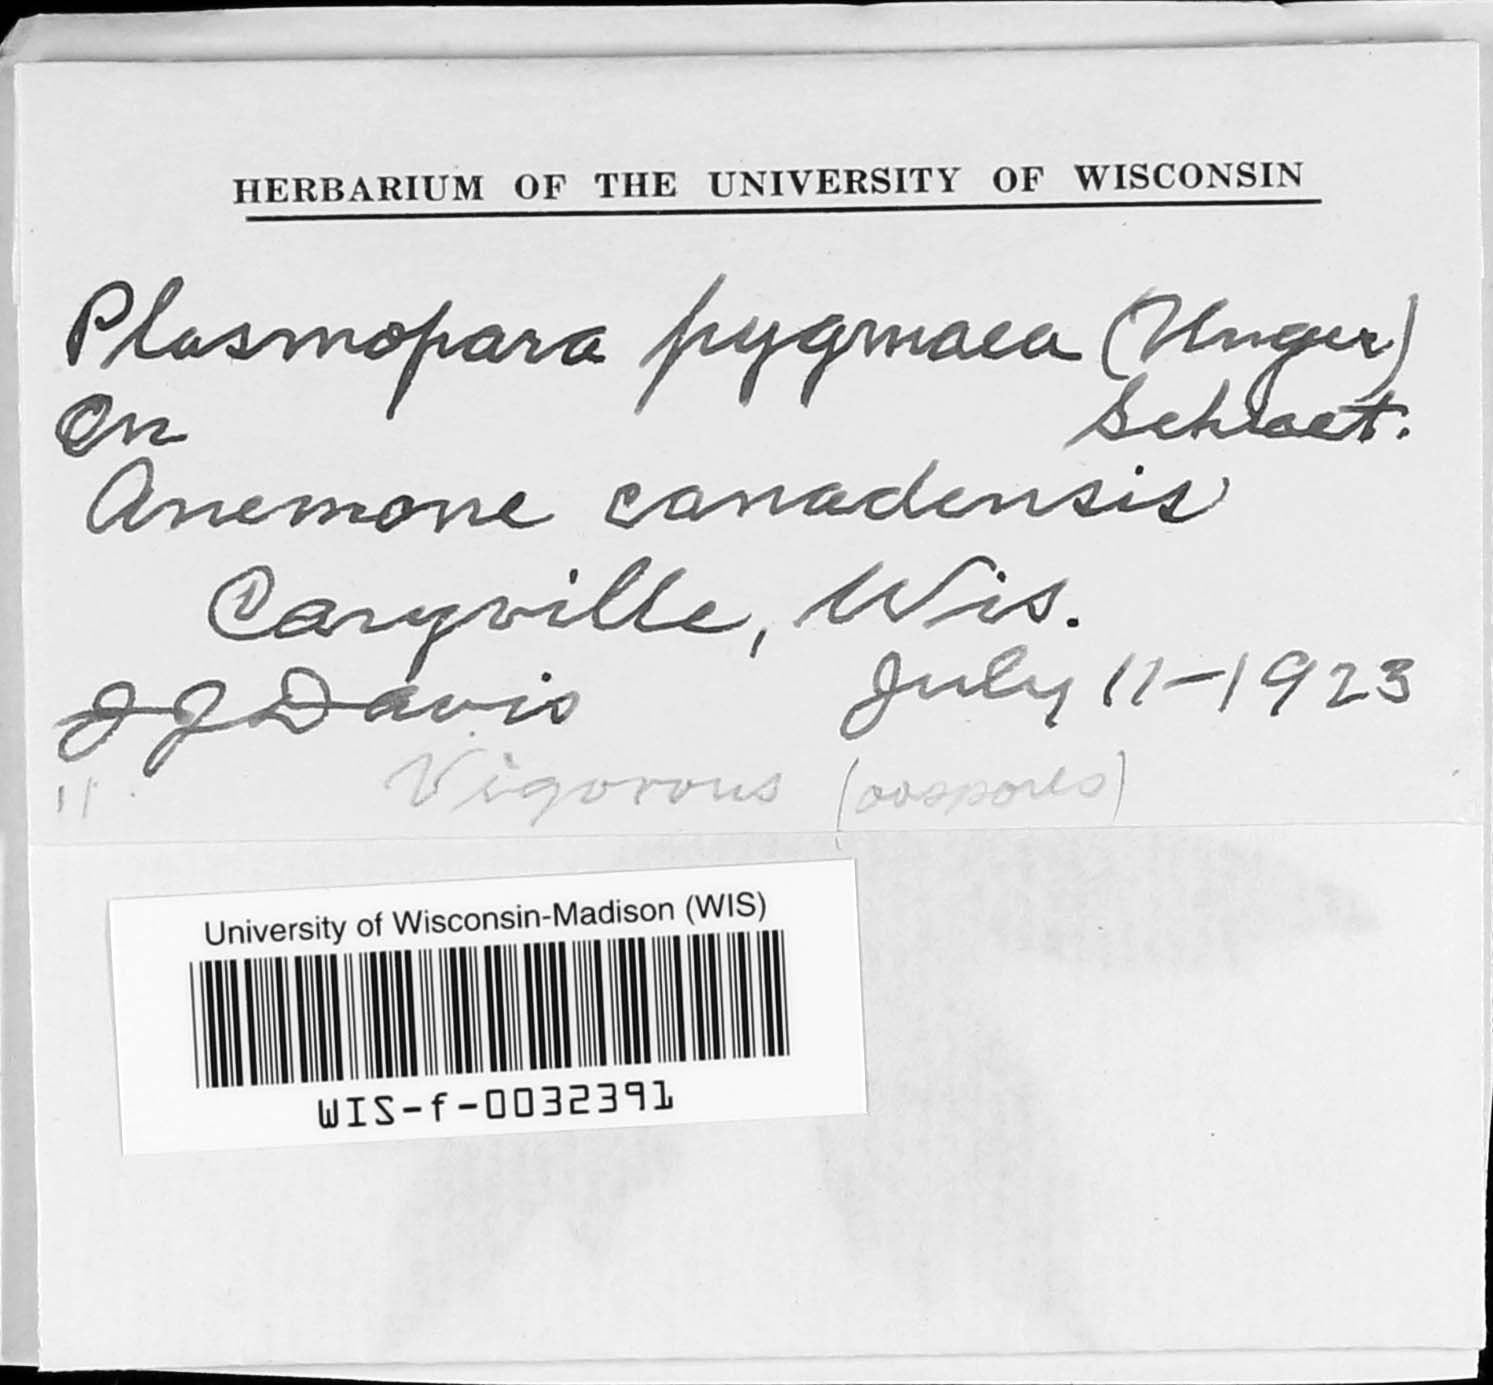 HERBARIUM OF THE UNIVERSITY OF WISCONSIN
Plasmopara pygmaea (Unger)
On Schroet.
Anemone canadensis
Caryville, Wis.
J J Davis July 11-1923
11. Vigorous (oospores)
University of Wisconsin-Madison (WIS)
WIS-f-0032391